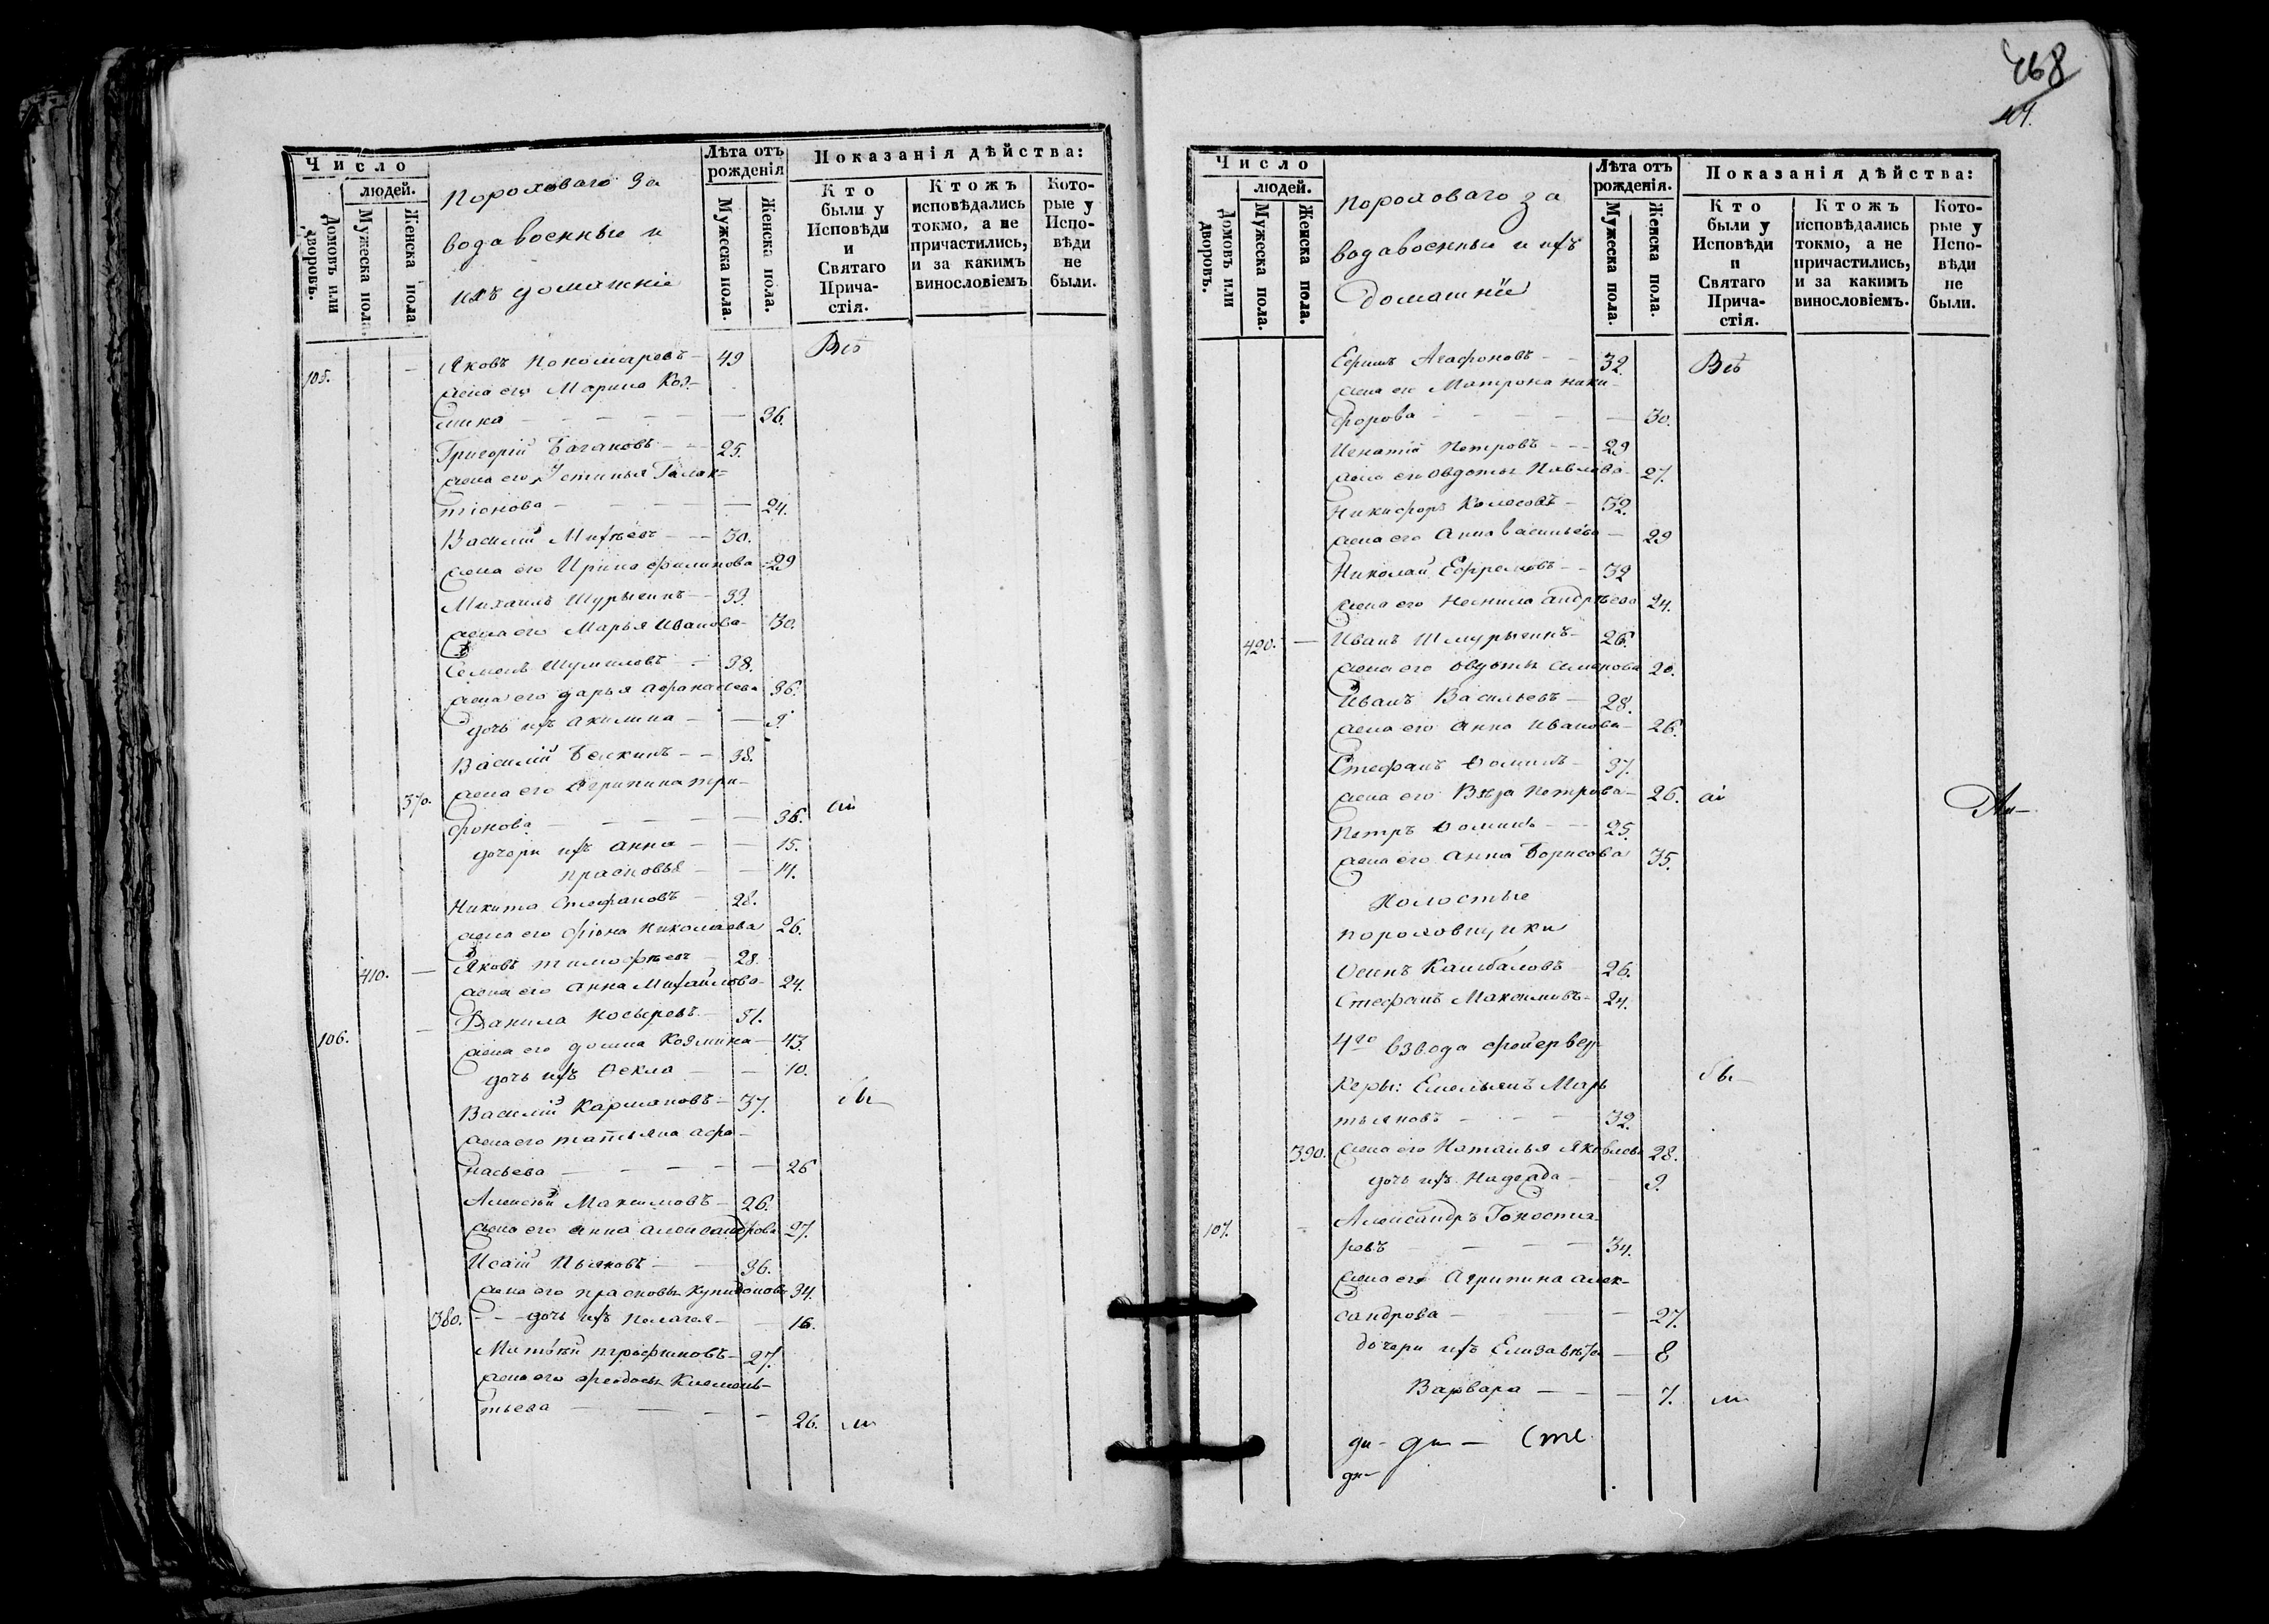 468
104.
Число
людей.
Домовъ или дворовъ.
Мужеска пола.
Женска пола.
Пороховаго за
водавоенные и
ихъ домашніе
Лѣта отъ рожденія
Мужеска пола.
Женска пола.
Показанія дѣйства:
Кто были у Исповѣди и Святаго Прича-стія.
Ктожъ исповѣдались токмо, а не причастились, и за какимъ винословіемъ
Кото-рые у Испо-вѣди не были.
105. — Яковъ Пономаревъ — 49 Всѣ
жена его Марина Коз-
мина — 36.
Григорій Багановъ — 25.
жена его Устинья Галак-
тіонова — 24.
Василій Михѣевъ — 30.
жена его Ирина Филипова — 29
Михаилъ Шурыгинъ — 33.
жена его Марья Иванова — 30.
Семенъ Шумиловъ — 38.
жена его Дарья Афанасьева 36.
дочь ихъ Акилина — 9.
Василій — 38.
370. жена его Агрипина Три-
фонова — 36.
дочери ихъ Анна — 15.
Прасковья — 14.
Никита Стефановъ — 28.
жена его Николаева 26.
410. — Яковъ Тимофѣевъ 28.
жена его Анна Михайлова — 24.
106. — Данила Носыревъ — 51.
жена его Домна Козмина — 43.
дочь ихъ Ѳекла — 10.
Василій Кармановъ — 37.
жена его Татьяна Афа-
насьева — 26
Алексѣй Максимовъ — 26.
жена его Анна Александрова 27.
Исаій Пьянковъ — 36.
жена его Прасковья Купидонова 34.
380. — дочь ихъ Пелагея — 16.
Матвѣй Трофимовъ — 27.
жена его Феодосья Клемень-
тьева — 26.
Число
людей.
Домовъ или дворовъ.
Мужеска пола.
Женска пола.
Пороховаго за
водавоенные и ихъ
домашніе
Лѣта отъ рожденія.
Мужеска пола.
Женска пола.
Показанія дѣйства:
Кто были у Исповѣди и Святаго Прича-стія.
Ктожъ исповѣдались токмо, а не причастились, и за какимъ винословіемъ.
Кото-рые у Испо-вѣди не были.
Ефимъ Агафоновъ — 32 Всѣ
жена его Матрона Ники-
форова — 30.
Игнатій Петровъ — 29
жена его Овдотья Павлова — 27.
Никифоръ Колесовъ — 32.
жена его Анна Васильева — 29
Николай Ефремовъ — 32
жена его Неонила Андрѣева 24.
420. — Иванъ Шмурыгинъ — 26.
жена его Овдотья Симонова 20.
Иванъ Васильевъ — 28.
жена его Анна Иванова — 26.
Стефанъ Ѳоминъ — 37.
жена его Вѣра Петрова — 26.
Петръ Ѳоминъ — 25.
жена его Анна Борисова 35.
Холостые
пороховщики
Осипъ — 26.
Стефанъ Максимовъ — 24.
4го взвода фейервер-
керы: Емельянъ Марь
тьяновъ — 32.
390. жена его Наталья Яковлева 28.
дочь ихъ Надежда — 9.
107. — Александръ Гоноста-
ревъ — 34.
жена его Агрипина Алек-
сандрова — 27.
дочери ихъ Елизавѣта — 8
Варвара — 7.